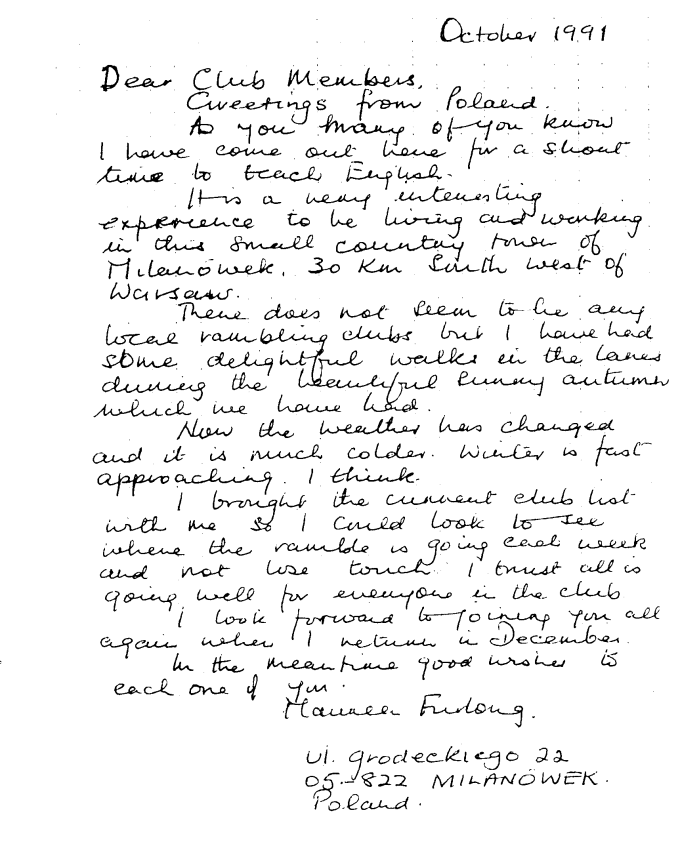 October 1991
Dear Club Members,
Greetings from Poland.
As you many of you know
I have come out here for a short
time to teach English.
It is a very interesting
experience to be living and working
in this small country town of
Milanówek, 30 Km South west of
Warsaw.
There does not seem to be any
local rambling clubs but I have had
some delightful walks in the lanes
during the beautiful sunny autumn
which we have had.
Now the weather has changed
and it is much colder. Winter is fast
approaching. I think.
I brought the current club list
with me so I could look to see
where the ramble is going each week
and not lose touch. I trust all is
going well for everyone in the club
I look forward to joining you all
again when I return in December.
In the meantime good wishes to
each one of you.
Maureen Furlong.
ul. grodeckiego 22
05-822 MILANÓWEK.
Poland.